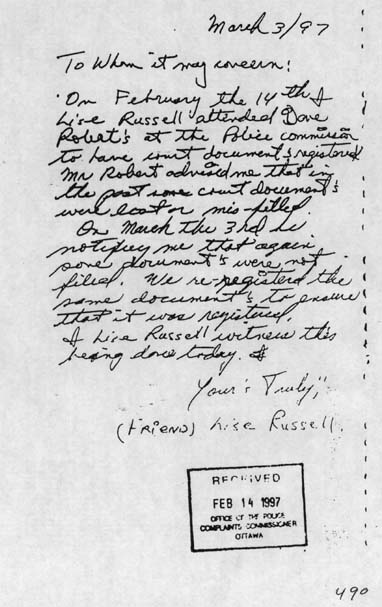 March 3/97
To Whom it may concern:
On February the 14th I
Lise Russell attended Dave
Robert's at the Police commission
to have court document's registered
Mr Robert advised me that in
the past some court document's
were lost or mis-filled.
On March the 3rd he
notifyed me that again
some document's were not
filed. We re-registered the
same document's to ensure
that it was registered.
I Lise Russell witness this
being done today.
Your's Truly,,
(FRIEND) Lise Russell.
RECEIVED
FEB 14 1997
OFFICE OF THE POLICE
COMPLAINTS COMMISSIONER
OTTAWA
490